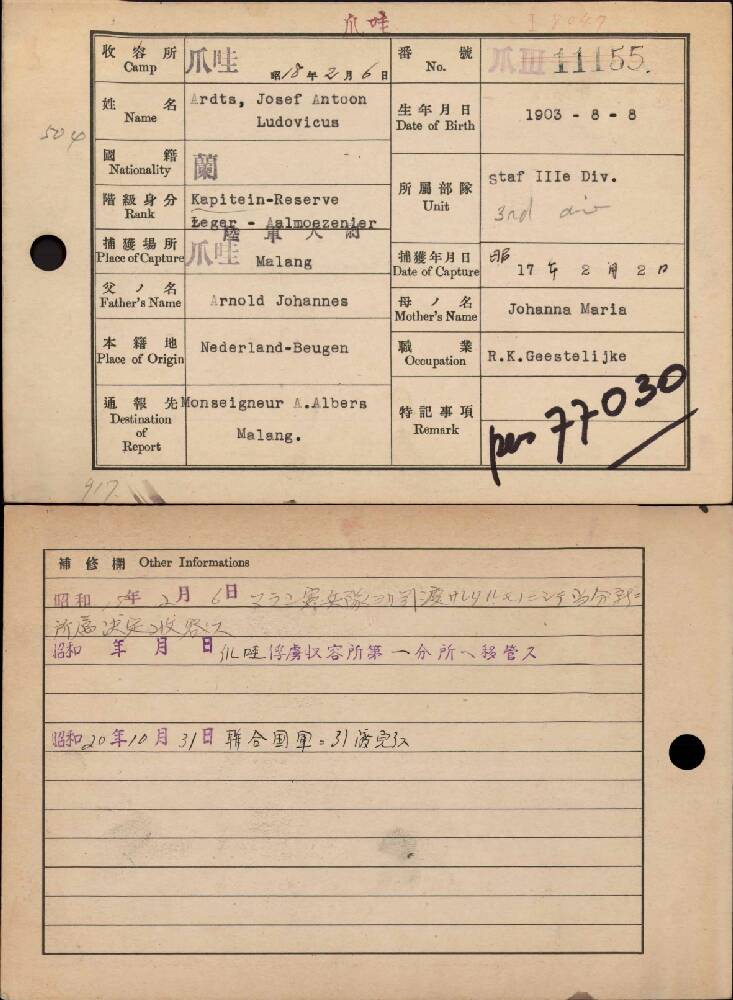 爪哇
収容所 Camp 爪哇 昭18年2月6日
番號 No. 爪III 11155.
姓名 Name Ardts, Josef Antoon Ludovicus
生年月日 Date of Birth 1903 - 8 - 8
國籍 Nationality 蘭
所屬部隊 Unit staf IIIe Div.
3rd div
階級身分 Rank Kapitein-Reserve
Leger - Aalmoezenier
陸軍大尉
捕獲場所 Place of Capture 爪哇 Malang
捕獲年月日 Date of Capture 昭17年3月8日
父ノ名 Father's Name Arnold Johannes
母ノ名 Mother's Name Johanna Maria
本籍地 Place of Origin Nederland-Beugen
職業 Occupation R.K.Geestelijke
通報先 Destination of Report Monseigneur A.Albers
Malang.
特記事項 Remark
77030
917.
補修欄 Other Informations
昭和 年2月6日
所属決定
昭和 年 月 日 爪哇俘虜収容所第一分所ヘ移管ス
昭和20年10月31日 聯合国軍ニ引渡完了ス